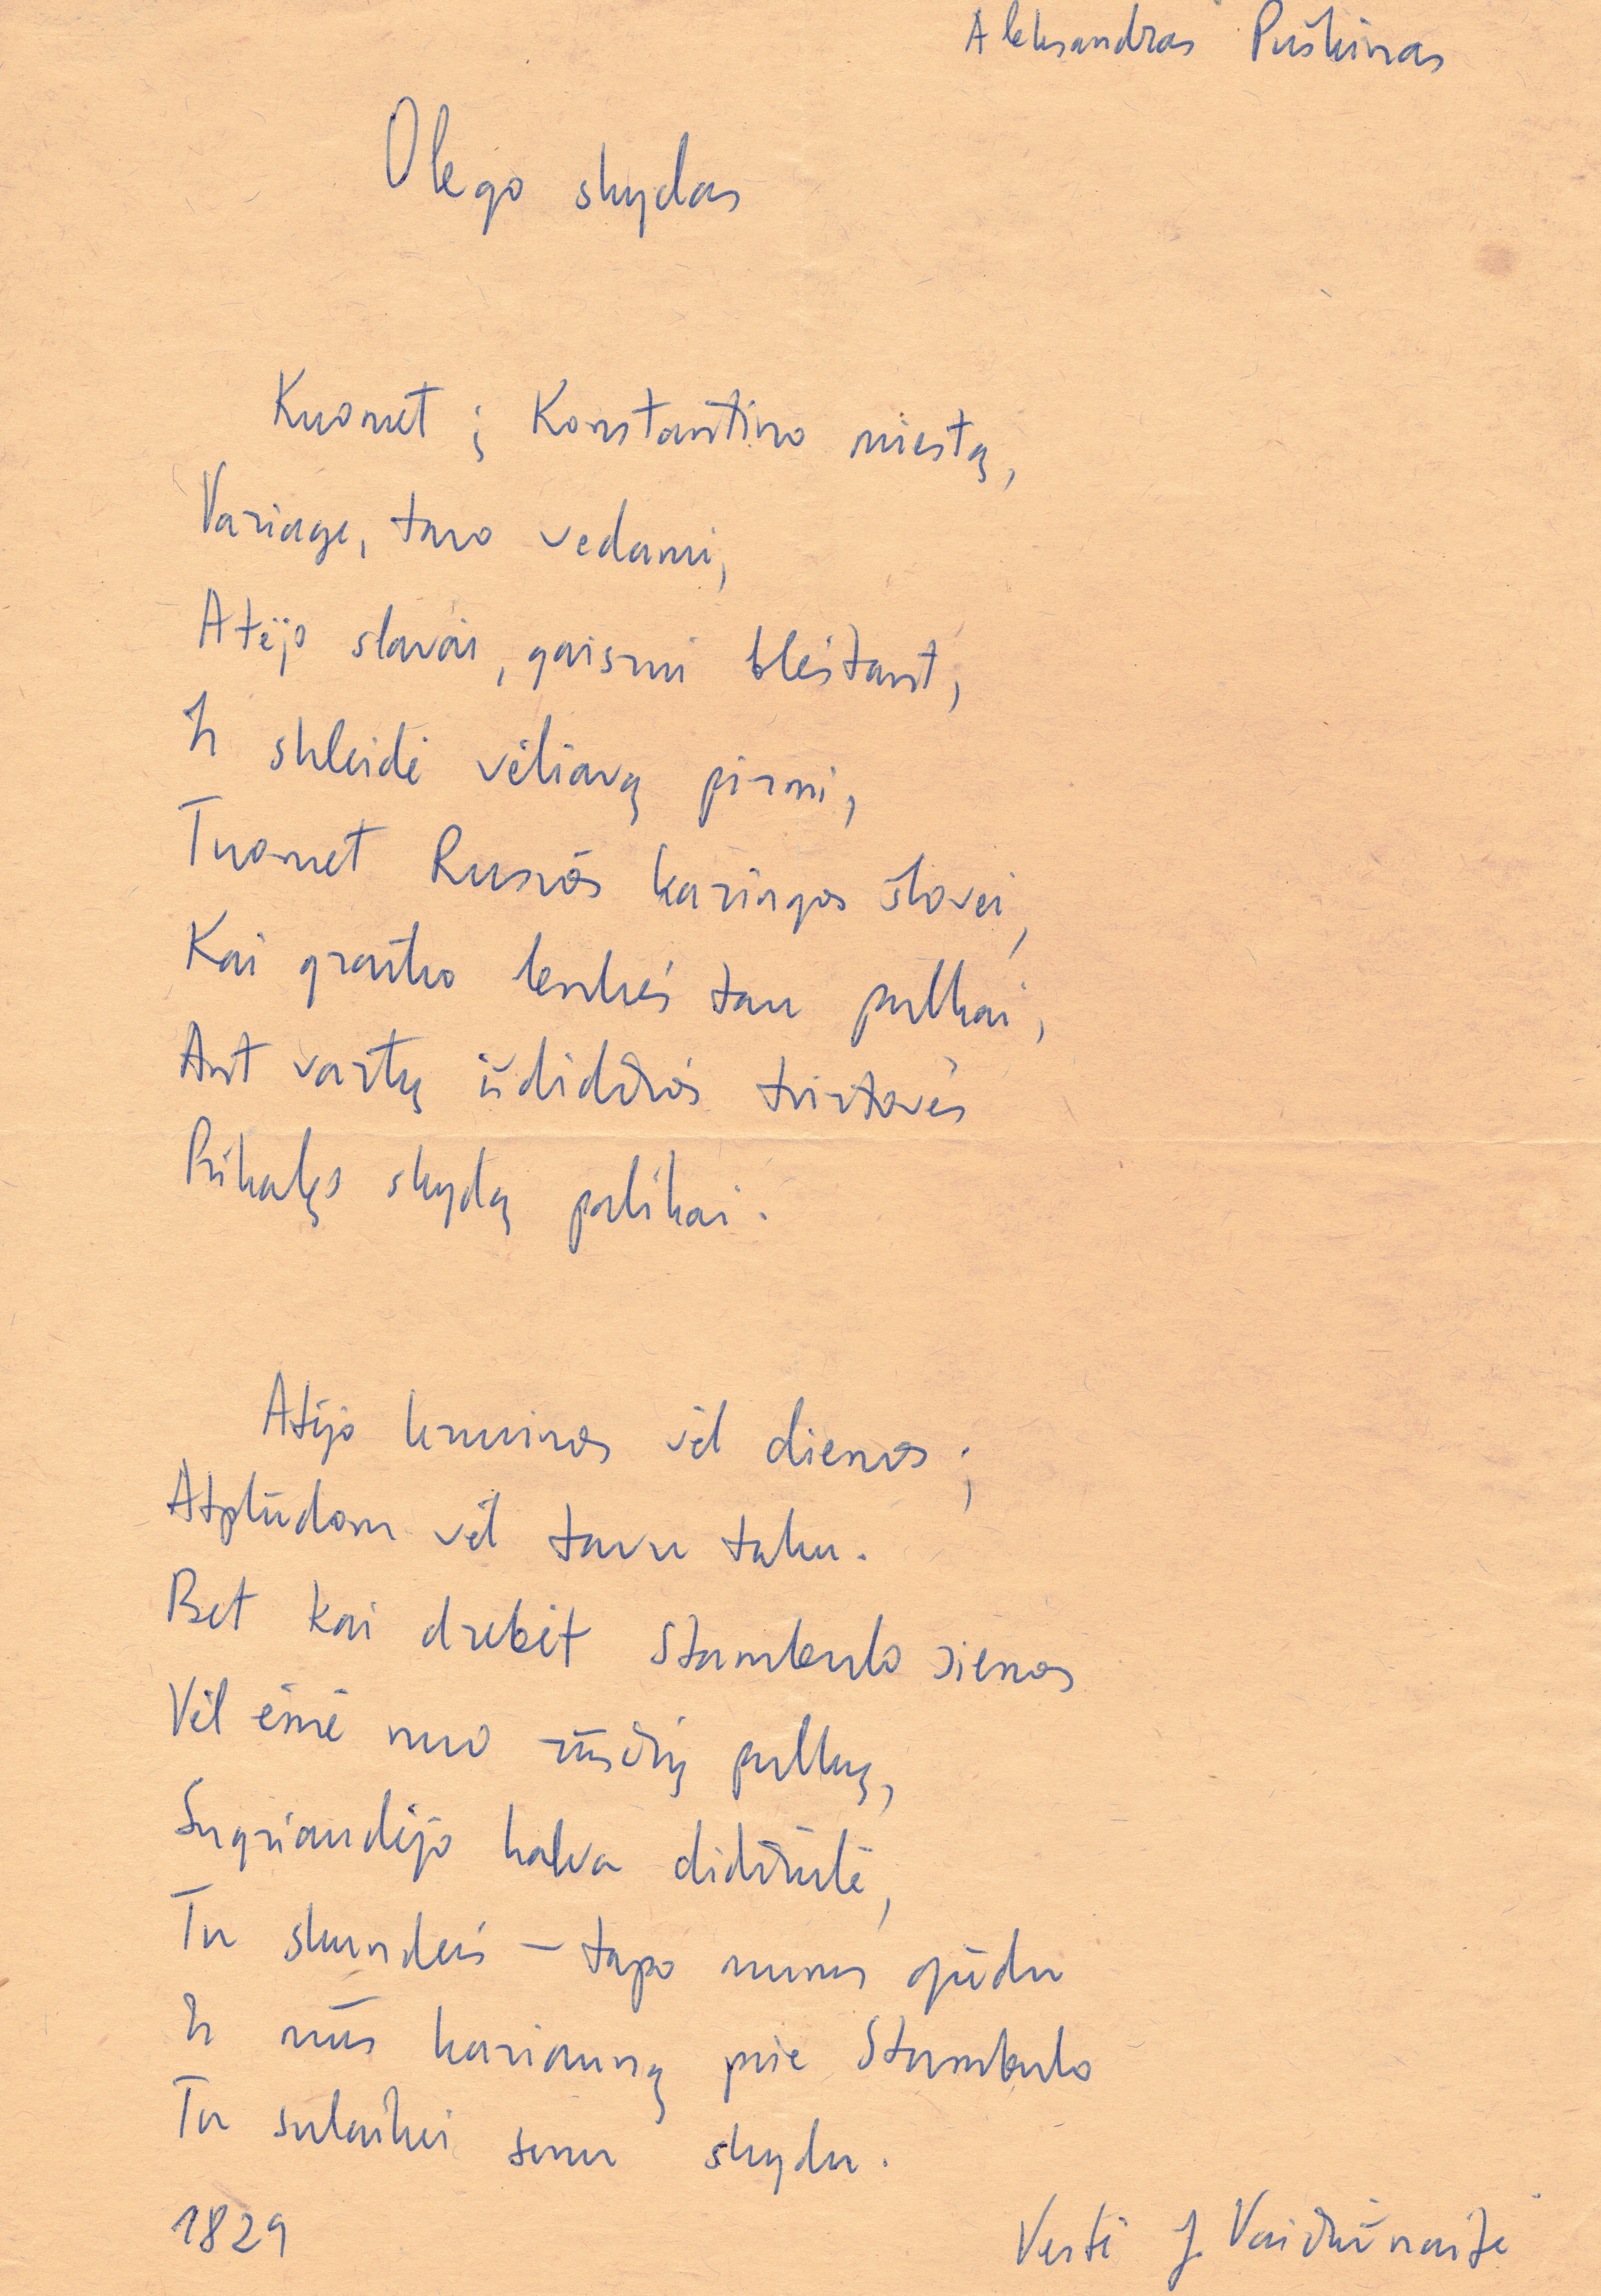 Aleksandras Puškinas
Olego skydas
Kuomet į Konstantino miestą,
Variage, tavo vedami,
Atėjo slavai, gaisrui blėstant,
Ir skleidė vėliavą pirmi,
Tuomet Rusios karingos šlovei,
Kai graiko lenkės tau pulkai,
Ant vartų išdidžios tvirtovės
Prikalęs skydą palikai.
Atėjo kruvinos vėl dienos;
Atplūdom vėl tavu taku.
Bet kai drebėt Stambulo sienos
Vėl ėmė nuo rūsčių pulkų,
Sugriaudėjo kalva didžiulė,
Tu skundeis – tapo mums gūdu
Ir mūs kariauną prie Stambulo
Tu sulaikei senu skydu.
1829
Vertė J. Vaidžiūnaitė